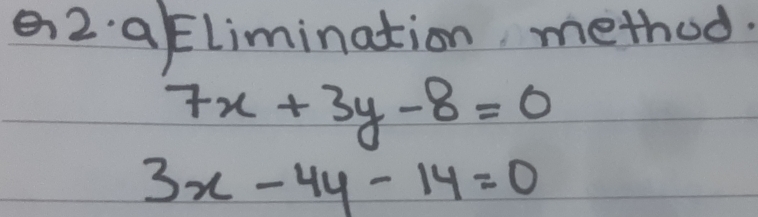 Q2.a) Elimination method.
7x + 3y - 8 = 0
3x - 4y - 14 = 0